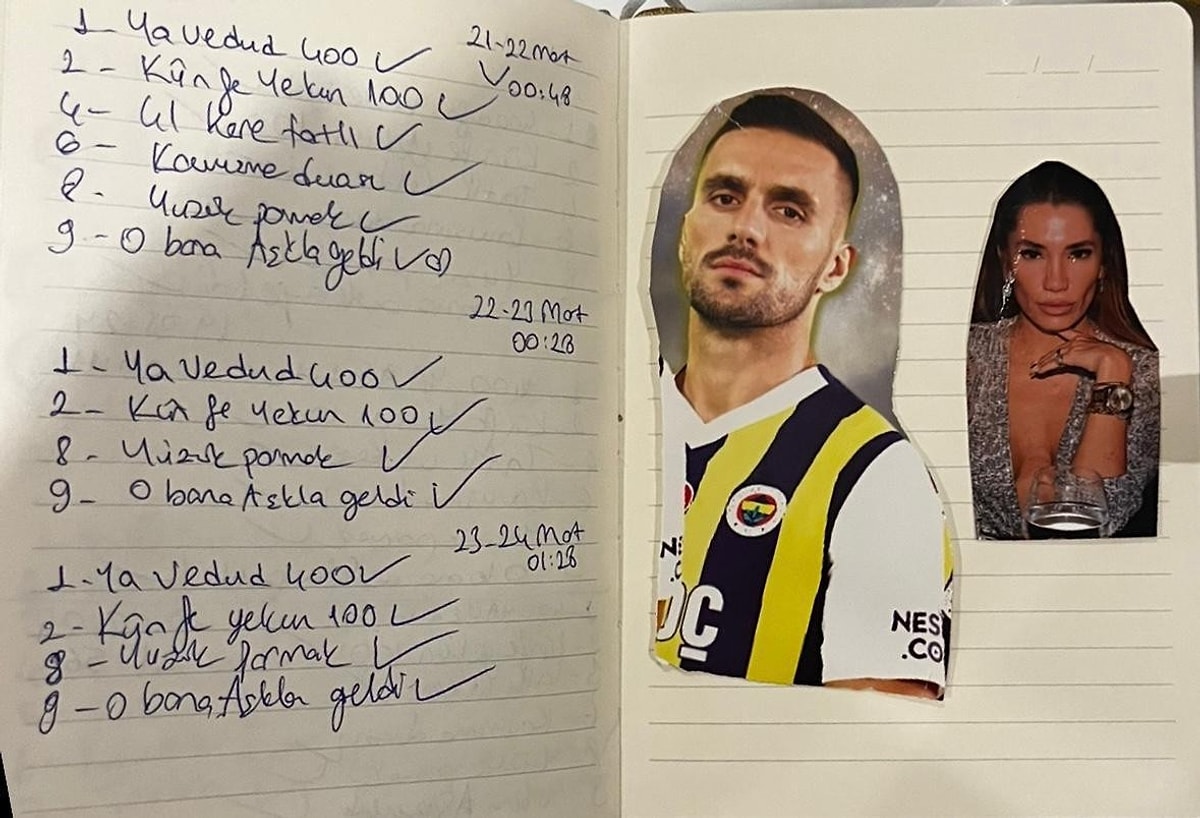 1 Ya Vedud 400 ✓
21-22 Mart
2 - Kün fe Yekün 100 ✓
✓00:48
4 - 41 Kere fatlı ✓
6 - Kavuzme duası ✓
8 - Yüzük parmak ✓
9 - O bana Aşkla geldi ✓
22-23 Mart
00:28
1 - Ya Vedud 400 ✓
2 - Kün fe Yekün 100 ✓
8 - Yüzük parmak ✓
9 - O bana Aşkla geldi ✓
23-24 Mart
01:28
1 - Ya Vedud 400 ✓
2 - Kün fe yekün 100 ✓
8 - Yüzük parmak ✓
9 - O bana Aşkla geldi ✓
NES
.CO